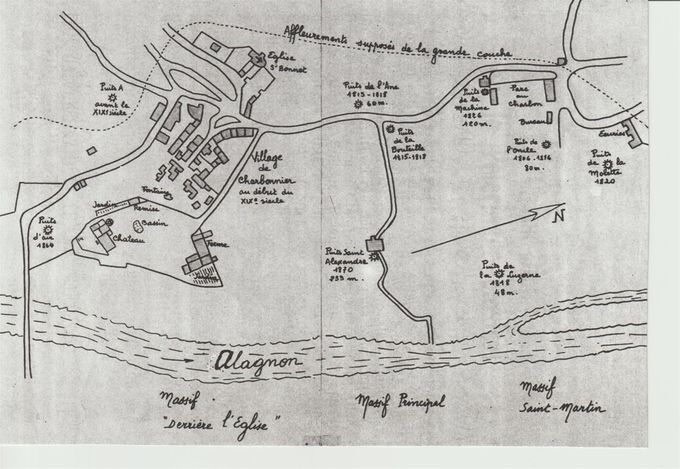 Affleurements supposés de la grande couche
Eglise
St Bonnet
Puits A
avant le
XIXe siècle
Puits de l'Ane
1815-1818
60 m.
Puits
de la
Machine
1826
120 m.
Parc
au
Charbon
Bureau
Ecuries
Puits
de la
Bouteille
1815-1818
Puits de
80 m.
Puits
de la
Molette
1820
Village
de
Charbonnier
au début du
XIXe siècle
Fontaine
Jardin
Remise
Bassin
Château
Ferme
Puits
d'air
1864
N
Puits Saint
Alexandre
1870
Puits de
la Luzerne
1818
48 m.
Alagnon
Massif
"Derrière l'Eglise"
Massif Principal
Massif
Saint-Martin